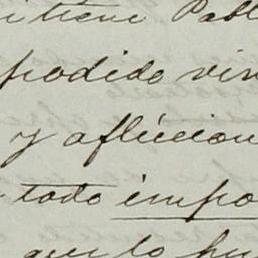 tiene Pabl
podido vin
y afliccion
todo impo
que lo hu